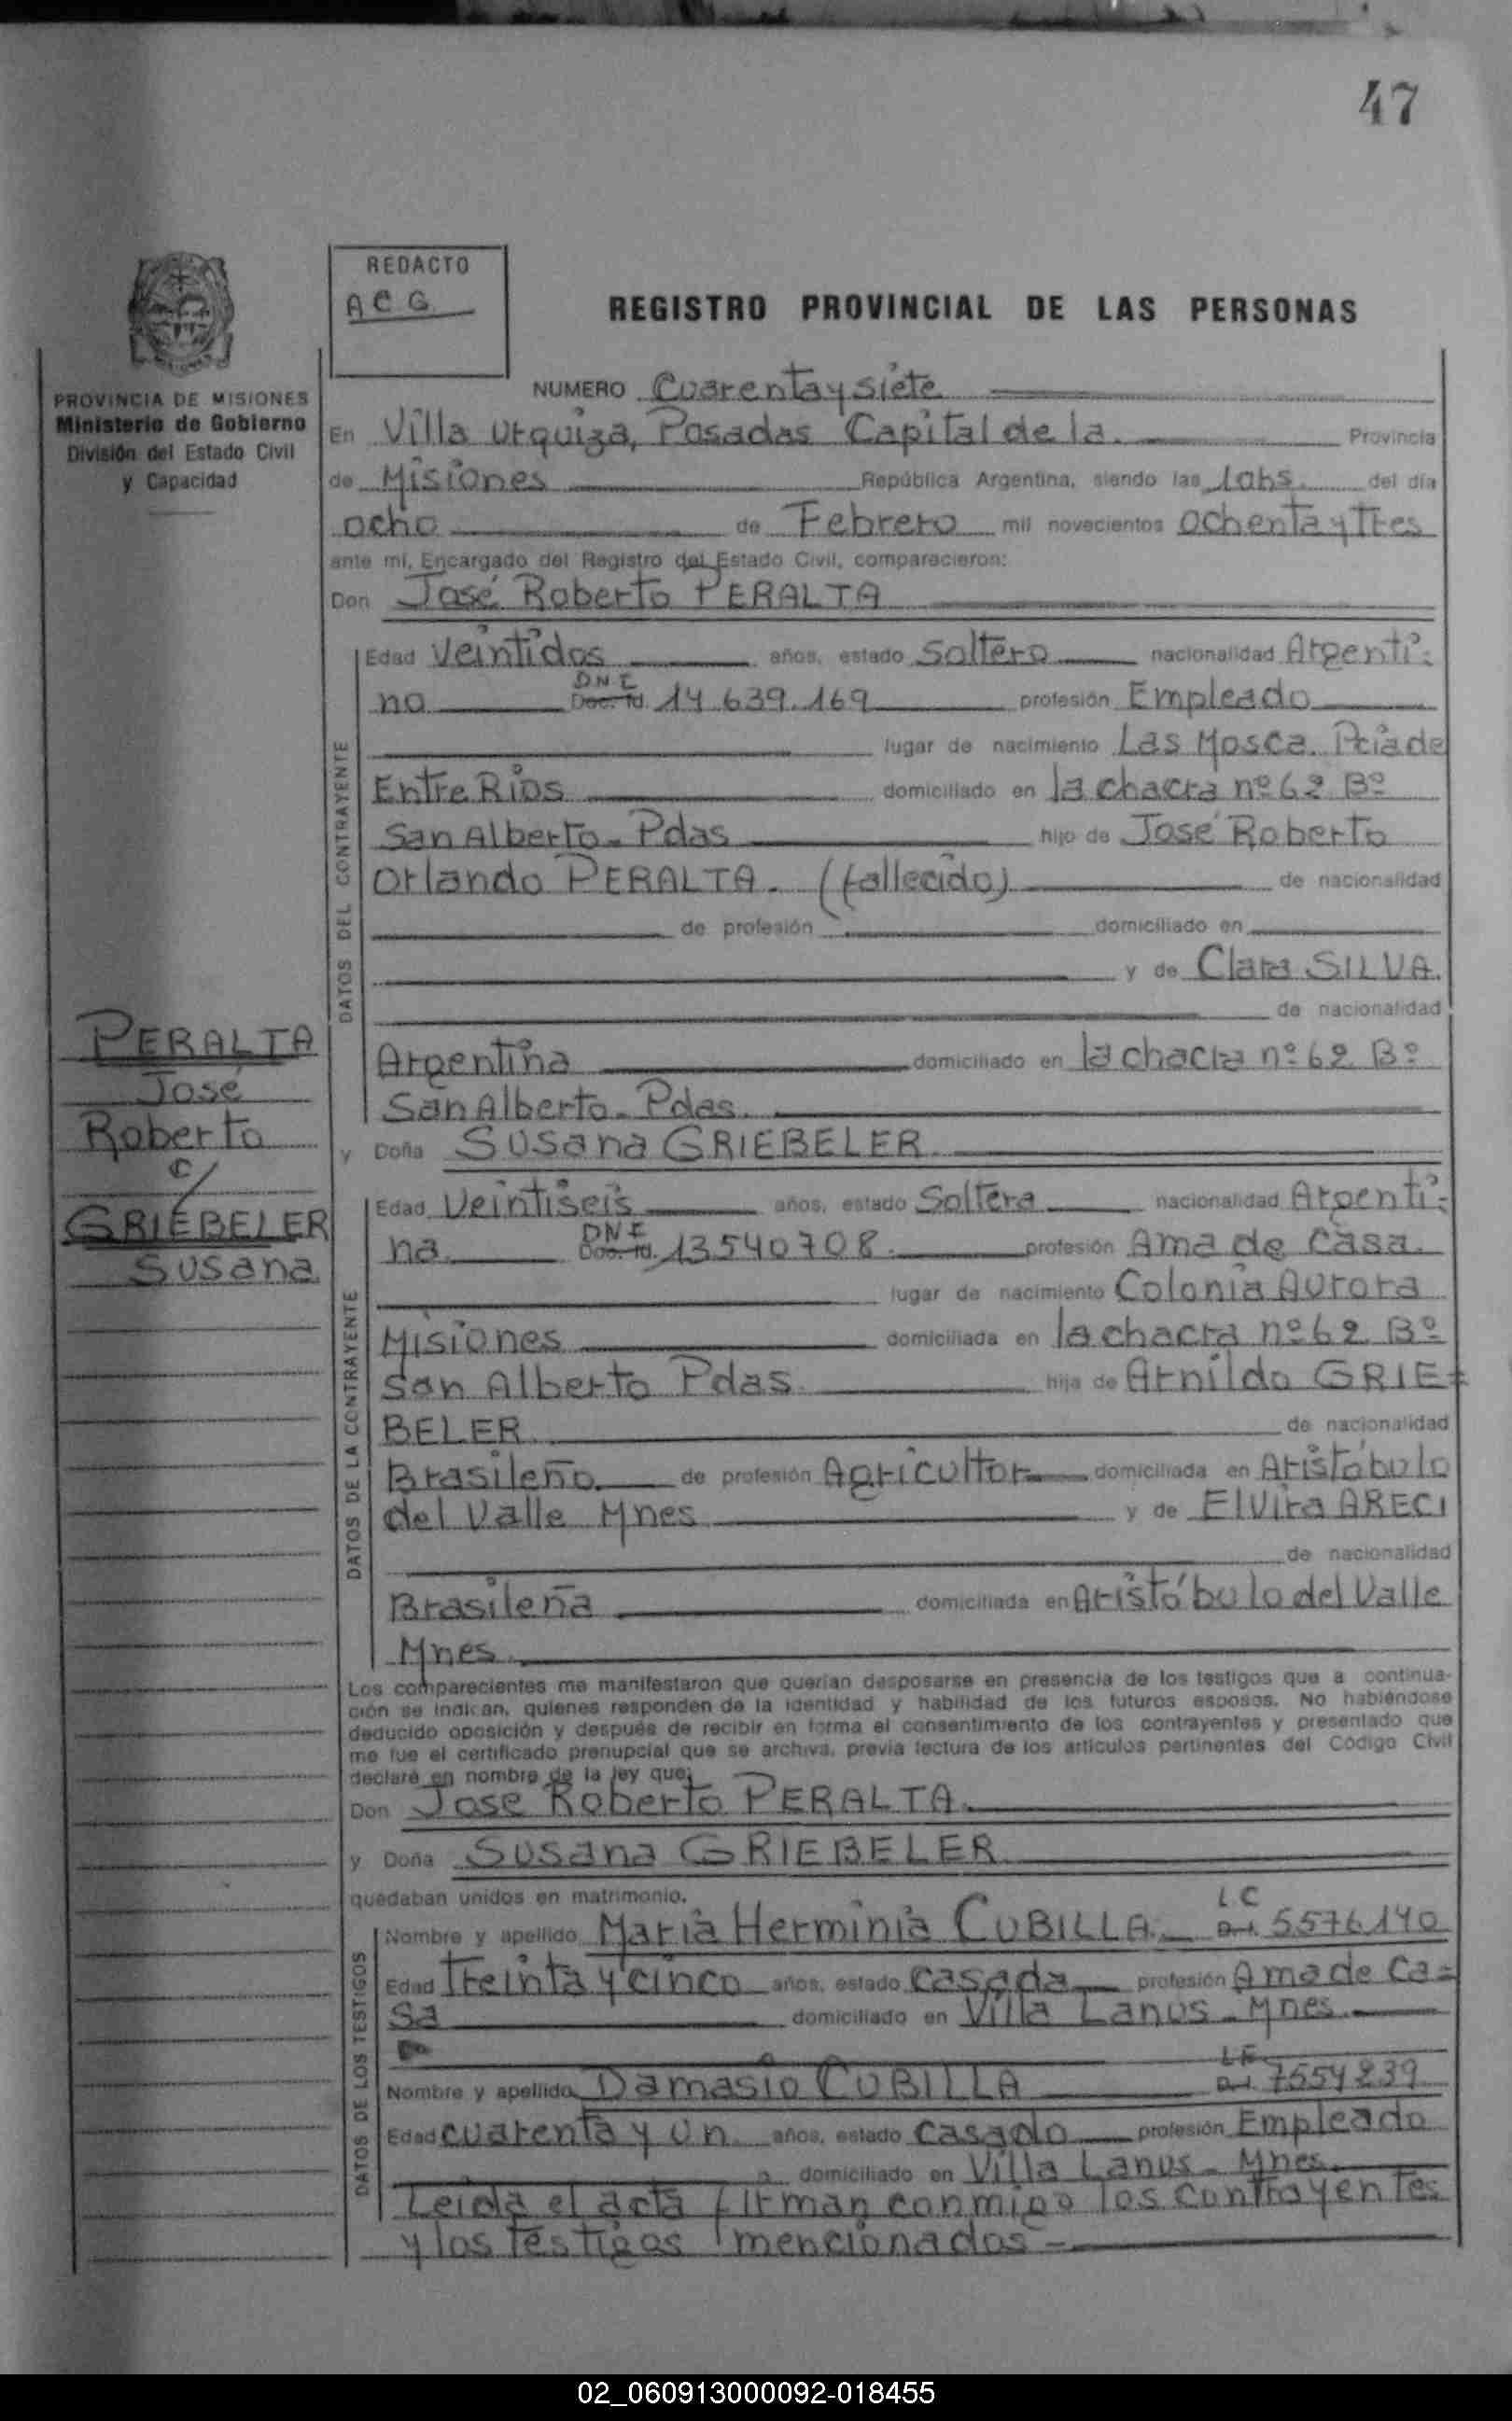 47
REDACTO
A C G
REGISTRO PROVINCIAL DE LAS PERSONAS
PROVINCIA DE MISIONES
Ministerio de Gobierno
División del Estado Civil
y Capacidad
NUMERO Cuarenta y siete
En Villa Urquiza, Posadas Capital de la Provincia
de Misiones República Argentina, siendo las 10hs. del día
ocho de Febrero mil novecientos ochenta y Tres
ante mí, Encargado del Registro del Estado Civil, comparecieron:
Don José Roberto PERALTA
DATOS DEL CONTRAYENTE
Edad Veintidos años, estado Soltero nacionalidad Argenti-
no D N I Doc. Id. 14.639.169 profesión Empleado
lugar de nacimiento Las Mosca. Pciade
Entre Rios domiciliado en la chacra nº 62 Bº
San Alberto - Pdas hijo de José Roberto
Orlando PERALTA. (fallecido) de nacionalidad
de profesión domiciliado en
y de Clara SILVA.
de nacionalidad
Argentina domiciliado en la chacra nº 62 Bº
San Alberto - Pdas.
y Doña Susana GRIEBELER
PERALTA
José
Roberto
c/
GRIEBELER
Susana
DATOS DE LA CONTRAYENTE
Edad Veintiseis años, estado Soltera nacionalidad Argenti-
na. D N I Doc. Id. 13540708. profesión Ama de Casa.
lugar de nacimiento Colonia Aurora
Misiones domiciliada en la chacra nº 62 Bº
San Alberto Pdas. hija de Arnildo GRIE=
BELER de nacionalidad
Brasileño. de profesión Agricultor domiciliada en Aristóbulo
del Valle Mnes y de Elvira ARECI
de nacionalidad
Brasileña domiciliada en Aristóbulo del Valle
Mnes.
Los comparecientes me manifestaron que querían desposarse en presencia de los testigos que a continua-
ción se indican, quienes responden de la identidad y habilidad de los futuros esposos. No habiéndose
deducido oposición y después de recibir en forma el consentimiento de los contrayentes y presentado que
me fue el certificado prenupcial que se archiva, previa lectura de los artículos pertinentes del Código Civil
declaré en nombre de la ley que:
Don Jose Roberto PERALTA.
y Doña Susana GRIEBELER
quedaban unidos en matrimonio.
DATOS DE LOS TESTIGOS
Nombre y apellido Maria Herminia CUBILLA. LC 5576140
Edad Treinta y cinco años, estado Casada profesión Ama de Ca=
sa domiciliado en Villa Lanus - Mnes.
Nombre y apellido Damasio CUBILLA LE 7554239
Edad cuarenta y un años, estado Casado profesión Empleado
domiciliado en Villa Lanus - Mnes.
Leida el acta firman conmigo los contrayentes
y los Testigos mencionados -
02_060913000092-018455